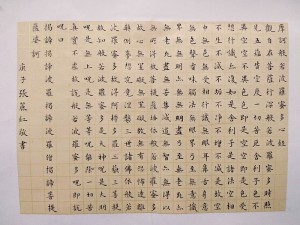 摩訶般若波羅蜜多心經
觀自在菩薩行深般若波羅蜜多時照
見五蘊皆空度一切苦厄舍利子色不
異空空不異色色即是空空即是色受
想行識亦復如是舍利子是諸法空相
不生不滅不垢不淨不增不減是故空
中無色無受想行識無眼耳鼻舌身意
無色聲香味觸法無眼界乃至無意識
界無無明亦無無明盡乃至無老死亦
無老死盡無苦集滅道無智亦無得以
無所得故菩提薩埵依般若波羅蜜多
故心無罣礙無罣礙故無有恐怖遠離
顛倒夢想究竟涅槃三世諸佛依般若
波羅蜜多故得阿耨多羅三藐三菩提
故知般若波羅蜜多是大神呪是大明
呪是無上呪是無等等呪能除一切苦
真實不虛故說般若波羅蜜多呪即說
呪曰
揭諦揭諦波羅揭諦波羅僧揭諦菩提
薩婆訶
庚子張
敬書